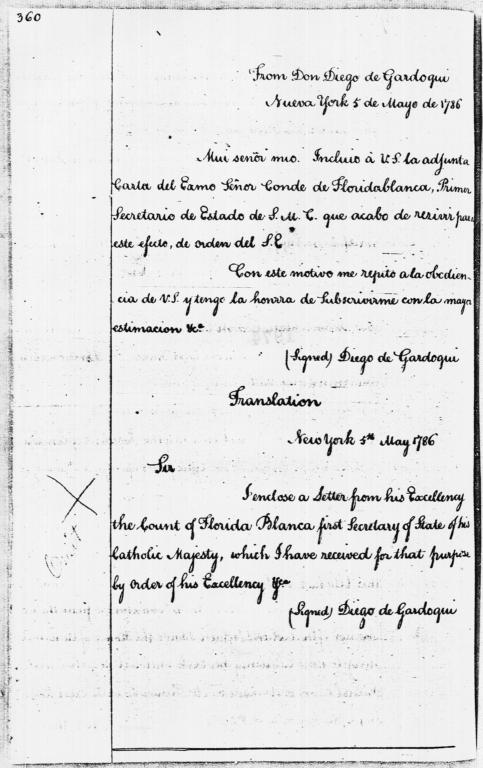 360
From Don Diego de Gardoqui
Nueva York 5 de Mayo de 1786
Mui señor mio. Incluio à V.S. la adjunta
Carta del Exmo Señor Conde de Floridablanca, Primer
Secretario de Estado de S. M. C. que acabo de recivir para
este efecto, de orden del S. E
Con este motivo me repito a la obedien-
cia de V.S. y tengo la honrra de Subscrivirme con la mayor
estimacion &c.a
(Signed) Diego de Gardoqui
Translation
New York 5th May 1786
Sir
I enclose a Letter from his Excellency
the Count of Florida Blanca first Secretary of State of his
Catholic Majesty, which I have received for that purpose
by order of his Excellency &ca
(Signed) Diego de Gardoqui
Omit